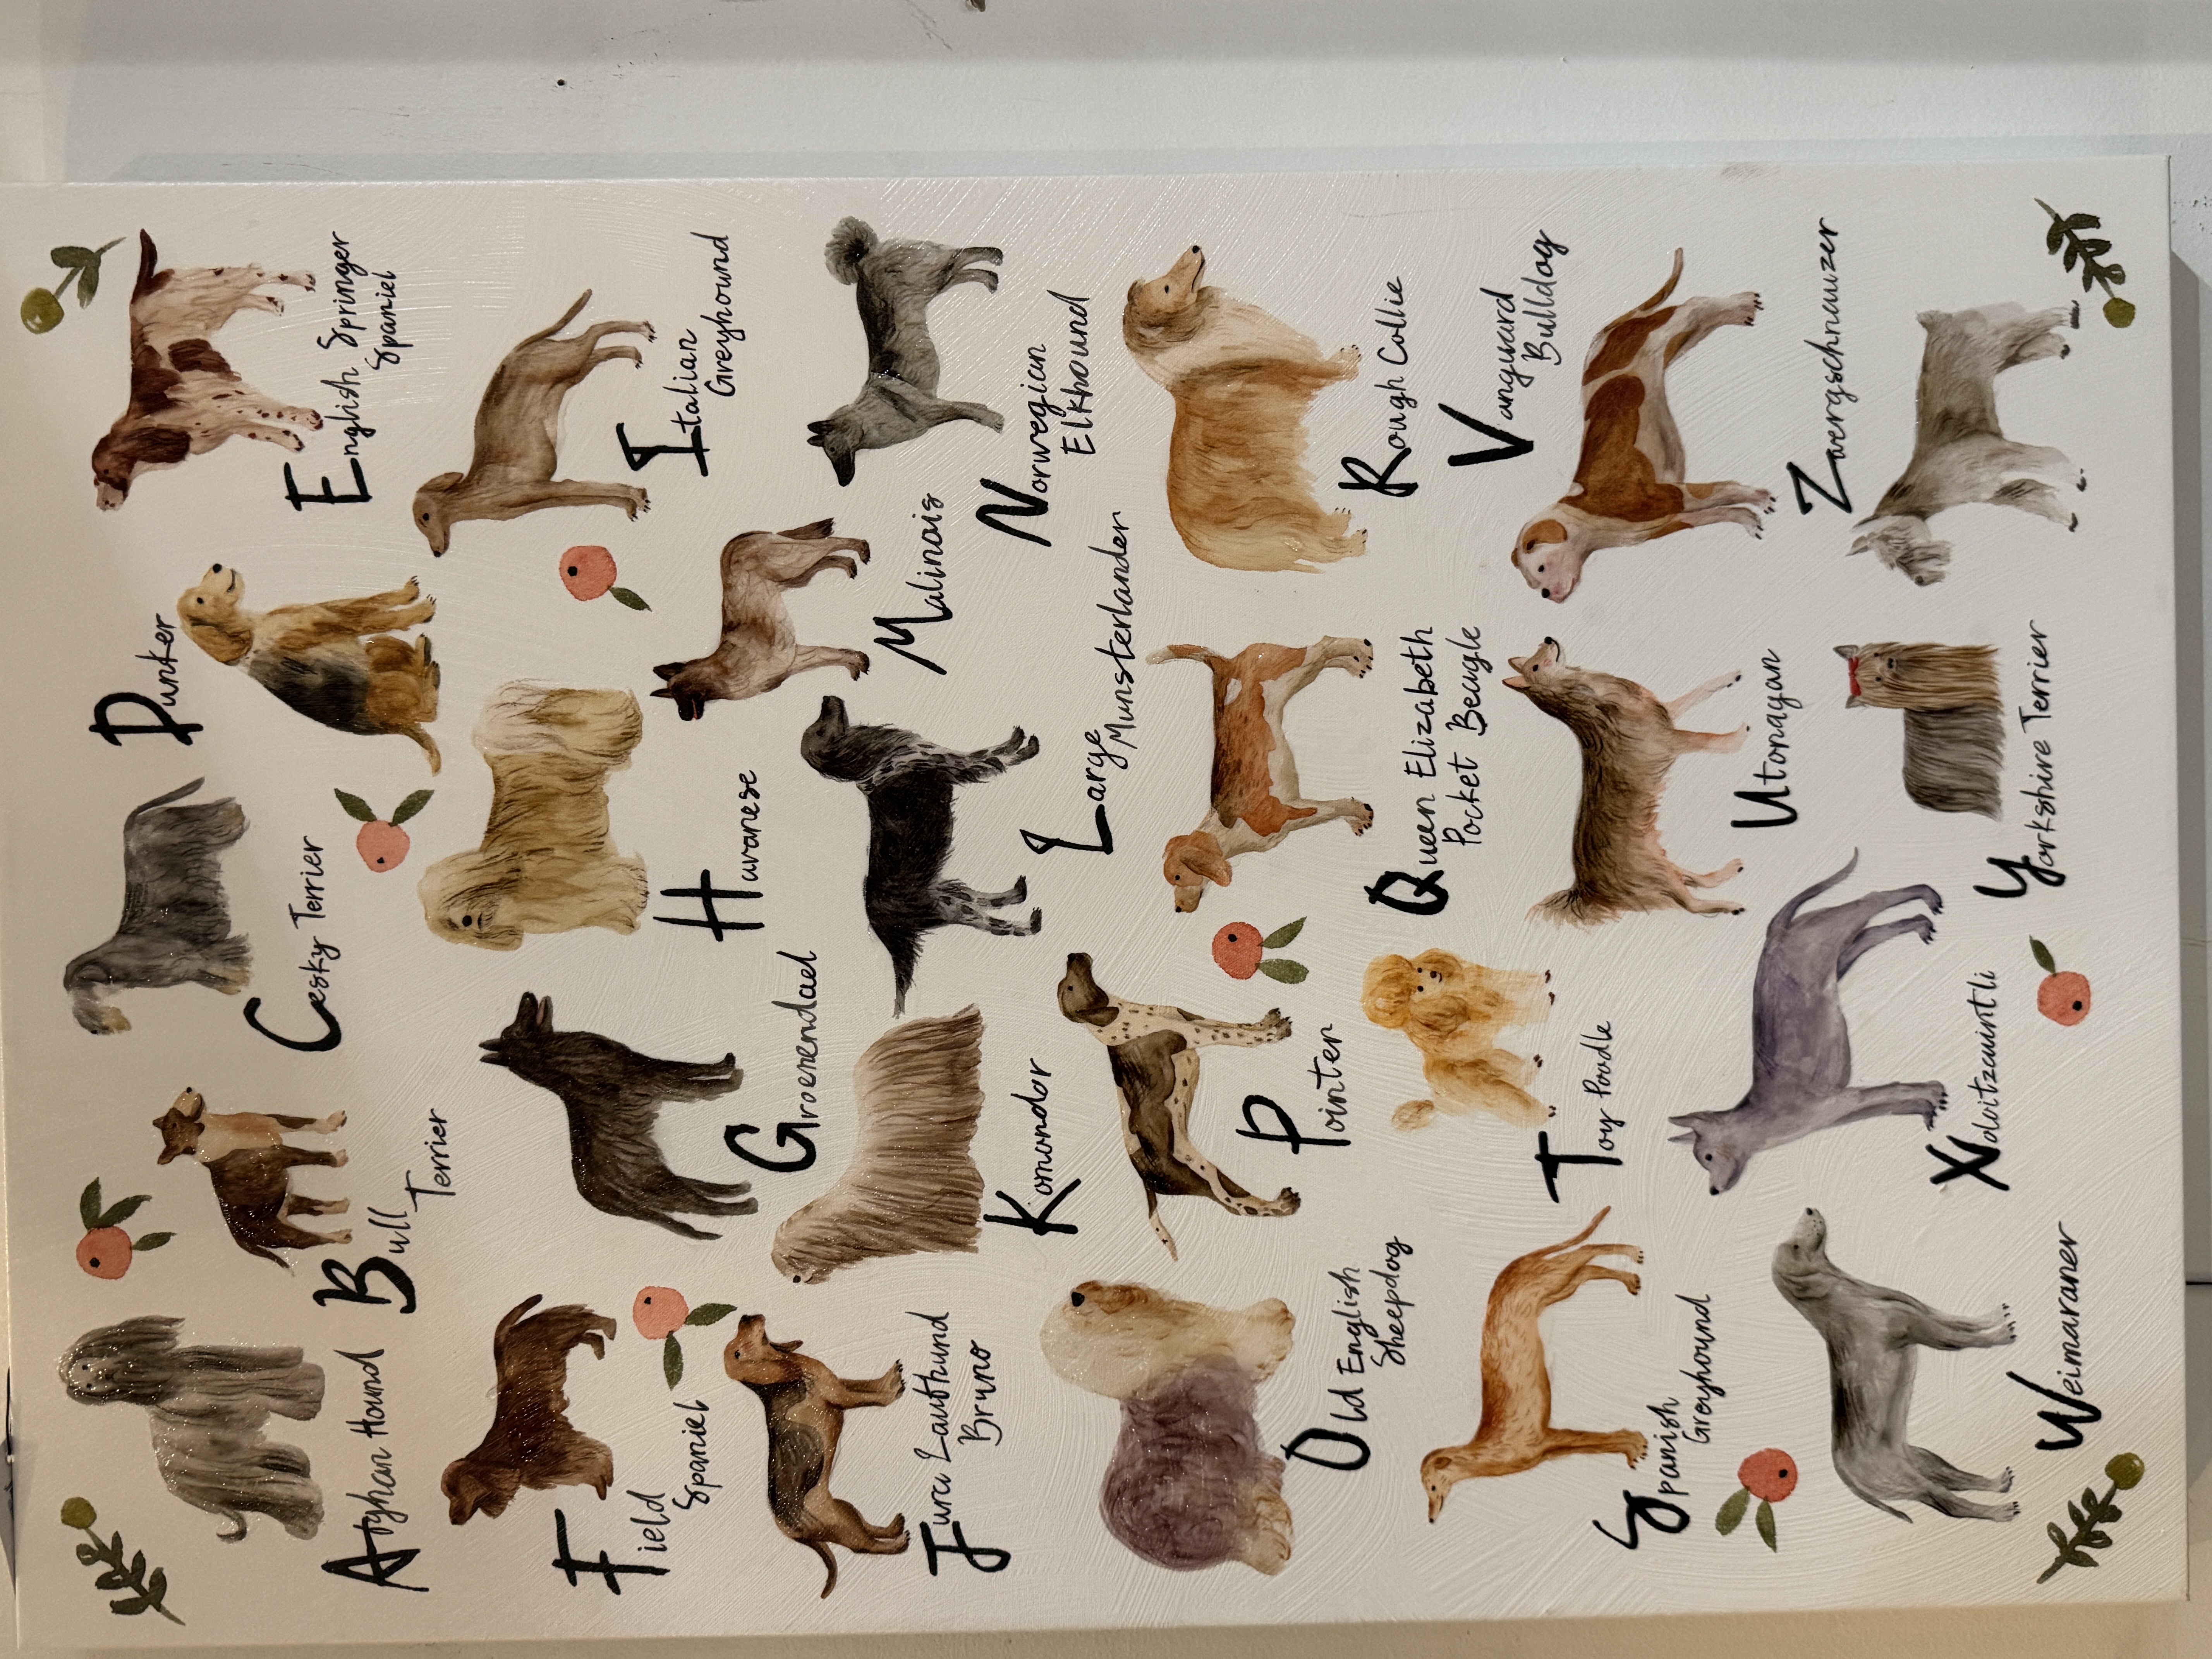 Afghan Hound
Bull
Terrier
Cesky Terrier
Dunker
English Springer
Spaniel
Field
Spaniel
Groenendael
Havanese
Italian
Greyhound
Jura Laufhund
Bruno
Komondor
Large
Munsterlander
Malinois
Norwegian
Elkhound
Old English
Sheepdog
Pointer
Queen Elizabeth
Pocket Beagle
Rough Collie
Spanish
Greyhound
Toy Poodle
Utonagan
Vanguard
Bulldog
Weimaraner
Xoloitzcuintli
Yorkshire Terrier
Zwergschnauzer